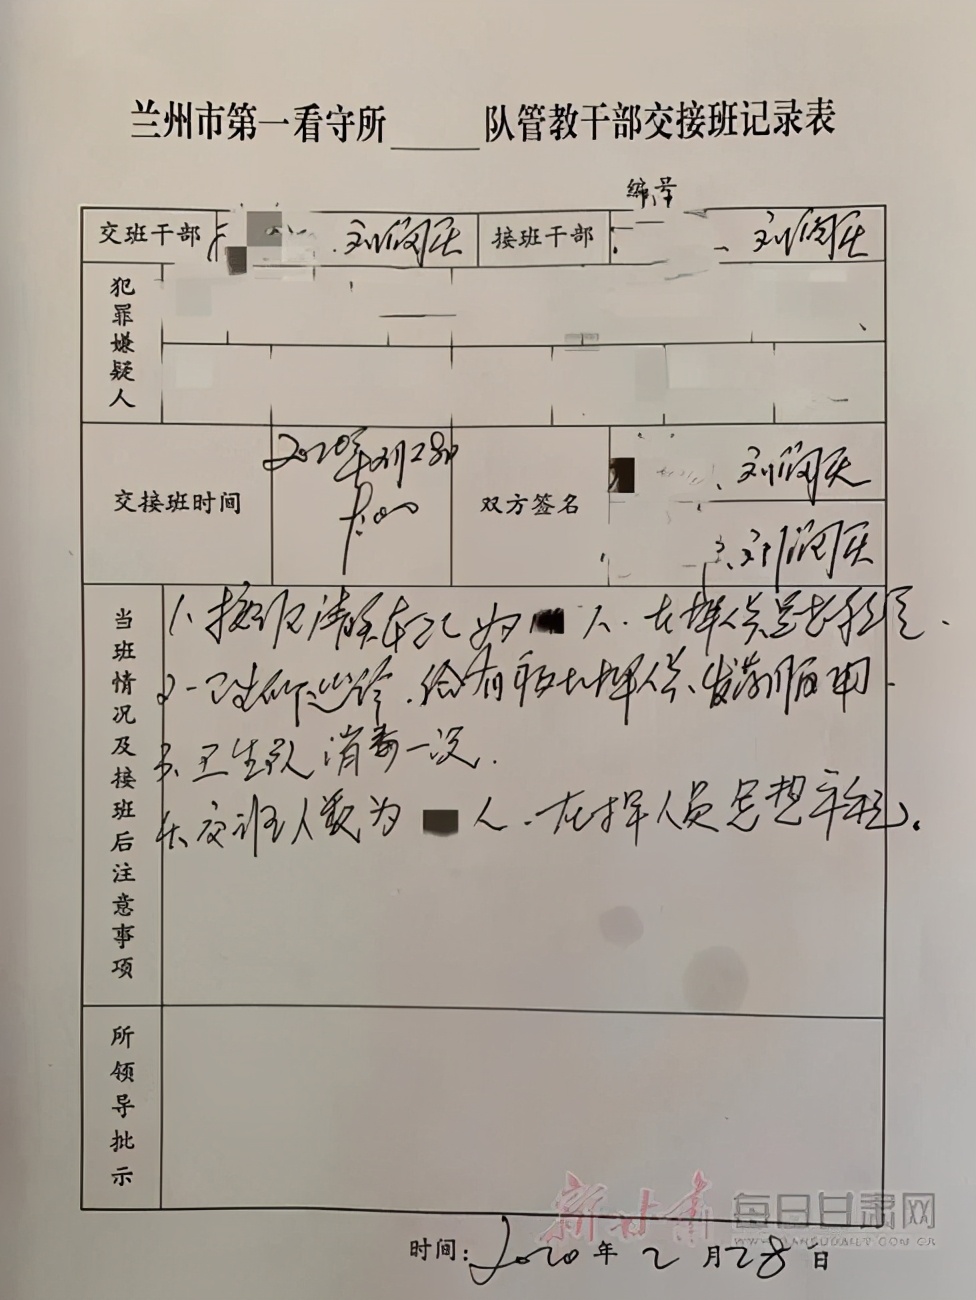 兰州市第一看守所____队管教干部交接班记录表
编号
交班干部 、刘润庆 接班干部 、刘润庆
犯罪嫌疑人
交接班时间 2020年2月28日 双方签名 、刘润庆
、刘润庆
当班情况及接班后注意事项
1、 人、在押人员
2、 巡诊、给有 在押人员、发药服用
3、卫生队消毒一次.
交班人数为 人、在押人员思想
所领导批示
新甘肃 每日甘肃网
WWW.GANSUDAILY.COM.CN
时间:2020年2月28日